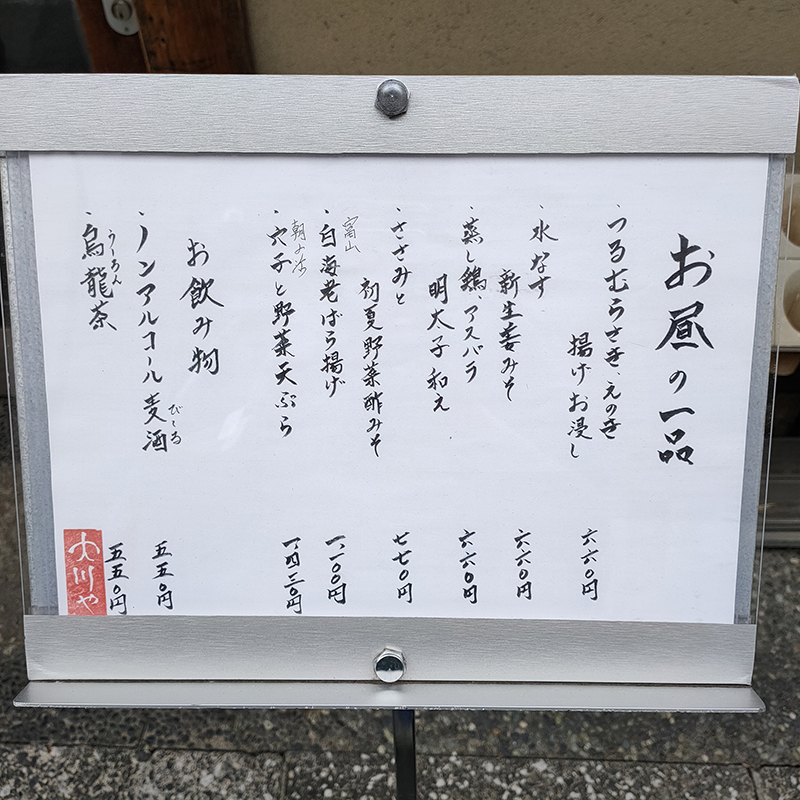 お昼の一品
・つるむらさき、えのき
揚げお浸し 六六〇円
・水なす
新生姜みそ 六六〇円
・蒸し鶏、アスパラ
明太子和え 六六〇円
・ささみと
初夏野菜酢みそ 七七〇円
富山
・白海老ばら揚げ 一、一〇〇円
・穴子と野菜天ぷら 一、四三〇円
お飲み物
・ノンアルコール麦酒 五五〇円
びーる
・烏龍茶 五五〇円
うーろん
大川や